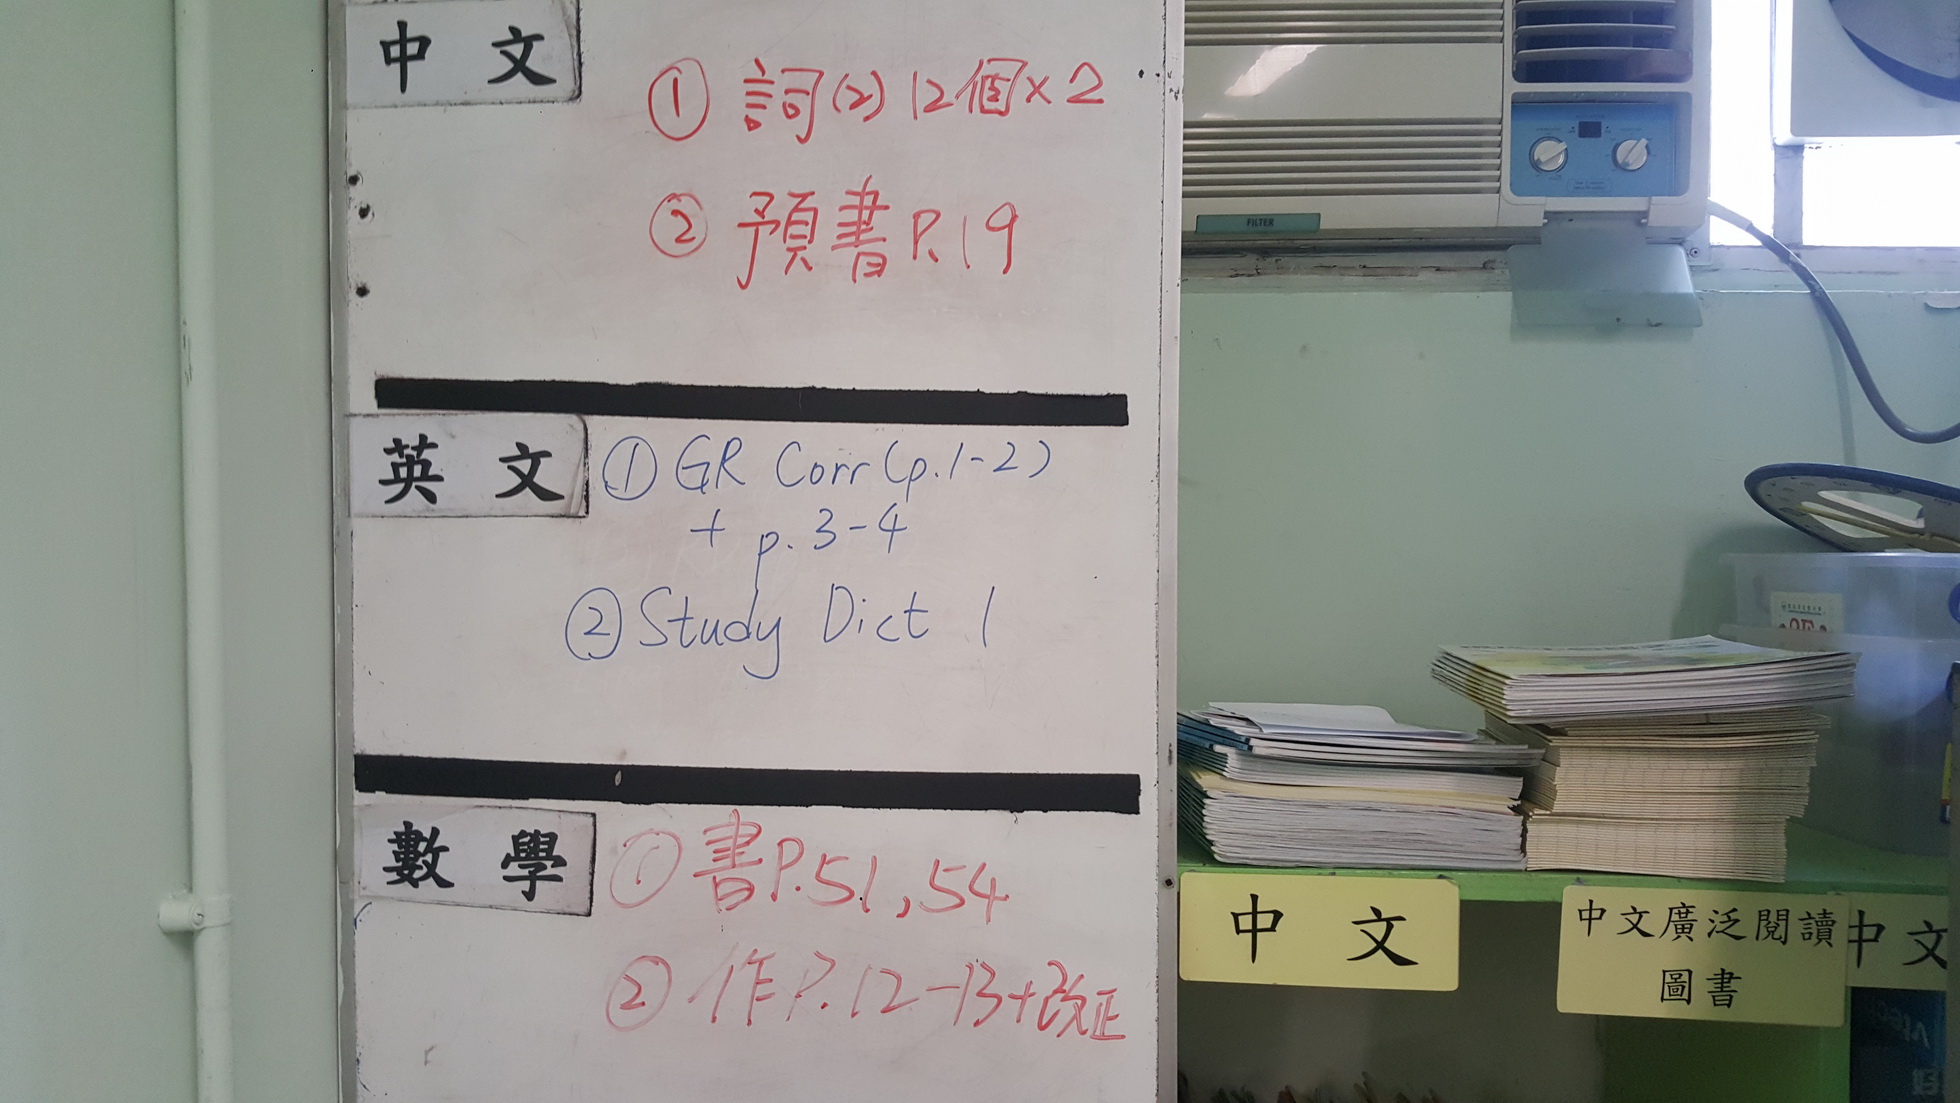 中文
① 詞(2) 12個×2
② 預書P.19
英文
① GR Corr (p.1-2)
+ p.3-4
② Study Dict 1
數學
① 書P.51,54
② 作P.12-13+改正
FILTER
中文
中文廣泛閱讀
圖書
中文